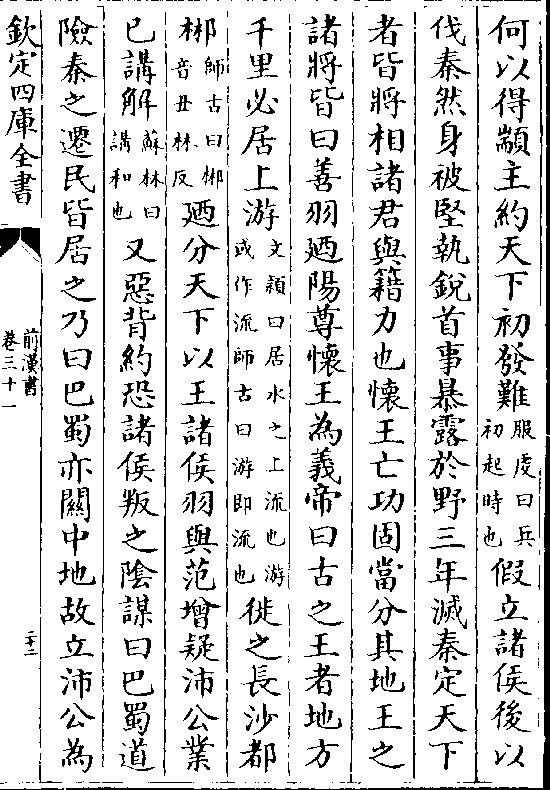 何以得顓主約天下初發難服䖍曰兵初起時也假立諸侯後以
伐秦然身被堅執銳首事暴露於野三年滅秦定天下
者皆將相諸君與籍力也懷王亡功固當分其地王之
諸將皆曰善羽廼陽尊懷王為義帝曰古之王者地方
千里必居上游文穎曰居水之上流也游或作流師古曰游即流也徙之長沙都
郴師古曰郴音丑林反廼分天下以王諸侯羽與范增疑沛公業
已講解蘇林曰講和也又惡背約恐諸侯叛之隂謀曰巴蜀道
險秦之遷民皆居之乃曰巴蜀亦關中地故立沛公為
欽定四庫全書
前漢書
卷三十一
二十二